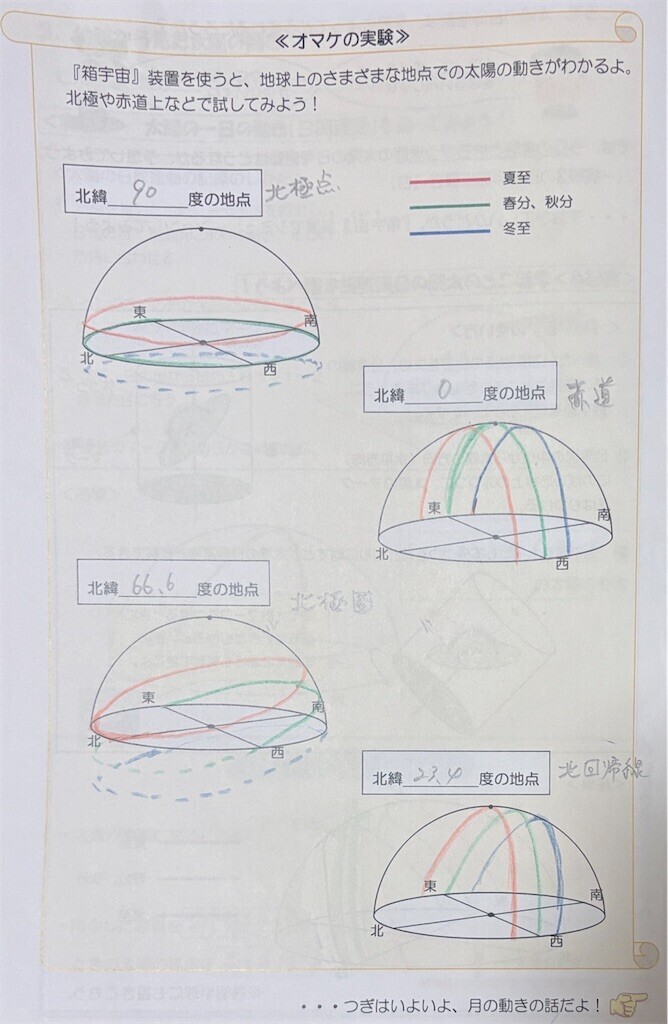 ≪オマケの実験≫
『箱宇宙』装置を使うと、地球上のさまざまな地点での太陽の動きがわかるよ。
北極や赤道上などで試してみよう！
北緯 90 度の地点 北極点
夏至
春分、秋分
冬至
東
南
北
西
北緯 0 度の地点 赤道
東
南
北
西
北緯 66.6 度の地点 北極圏
東
南
北
西
北緯 23.4 度の地点 北回帰線
東
南
北
西
・・・つぎはいよいよ、月の動きの話だよ！